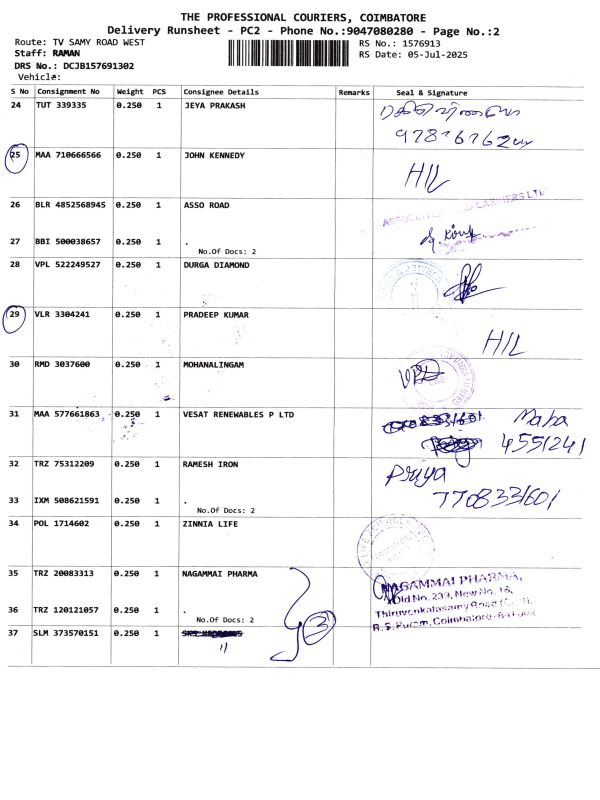 THE PROFESSIONAL COURIERS, COIMBATORE
Delivery Runsheet - PC2 - Phone No.:9047080280 - Page No.:2
Route: TV SAMY ROAD WEST
RS No.: 1576913
Staff: RAMAN
RS Date: 05-Jul-2025
DRS No.: DCJB157691302
Vehicle:
S No Consignment No Weight PCS Consignee Details Remarks Seal & Signature
24 TUT 339335 0.250 1 JEYA PRAKASH
25 MAA 710666566 0.250 1 JOHN KENNEDY
H/L
26 BLR 4852568945 0.250 1 ASSO ROAD
27 BBI 500038657 0.250 1 .
No.Of Docs: 2
28 VPL 522249527 0.250 1 DURGA DIAMOND
29 VLR 3304241 0.250 1 PRADEEP KUMAR
H/L
30 RMD 3037600 0.250 1 MOHANALINGAM
31 MAA 577661863 0.250 1 VESAT RENEWABLES P LTD
Maha
4551241
32 TRZ 75312209 0.250 1 RAMESH IRON
Priya
7708331601
33 IXM 508621591 0.250 1 .
No.Of Docs: 2
34 POL 1714602 0.250 1 ZINNIA LIFE
35 TRZ 20083313 0.250 1 NAGAMMAI PHARMA
NAGAMMAI PHARMA,
Old No. 239, New No. 16,
Thiruvenkatasamy Road
R.S. Puram, Coimbatore
36 TRZ 120121057 0.250 1 .
No.Of Docs: 2
3
37 SLM 373570151 0.250 1
"